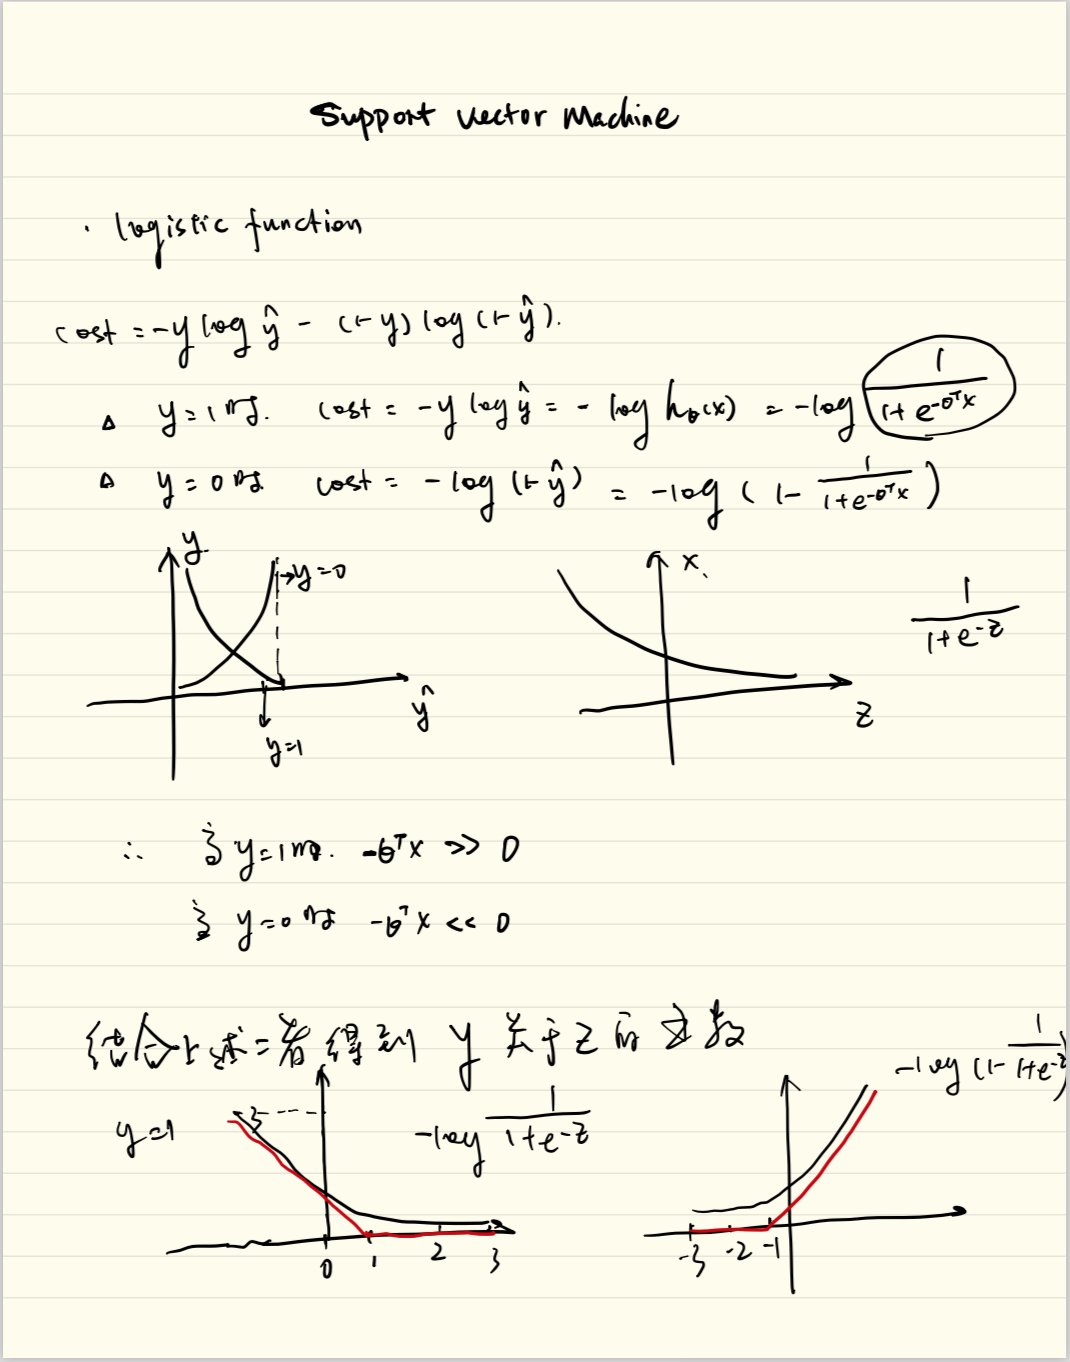 Support Vector Machine
· logistic function
cost = -y log ŷ - (1-y) log (1-ŷ).
△ y=1时. cost = -y log ŷ = - log hθ(x) = -log 1/(1+e^-θᵀx)
△ y=0时 cost = -log (1-ŷ) = -log (1- 1/(1+e^-θᵀx))
y
→y=0
ŷ
y=1
x
z
1/(1+e^-z)
∴ 当 y=1时. -θᵀx >> 0
当 y=0时 -θᵀx << 0
结合上述二者得到 y 关于 z 的函数
y=1
3
-log 1/(1+e^-z)
0 1 2 3
-log (1- 1/(1+e^-z))
-3 -2 -1